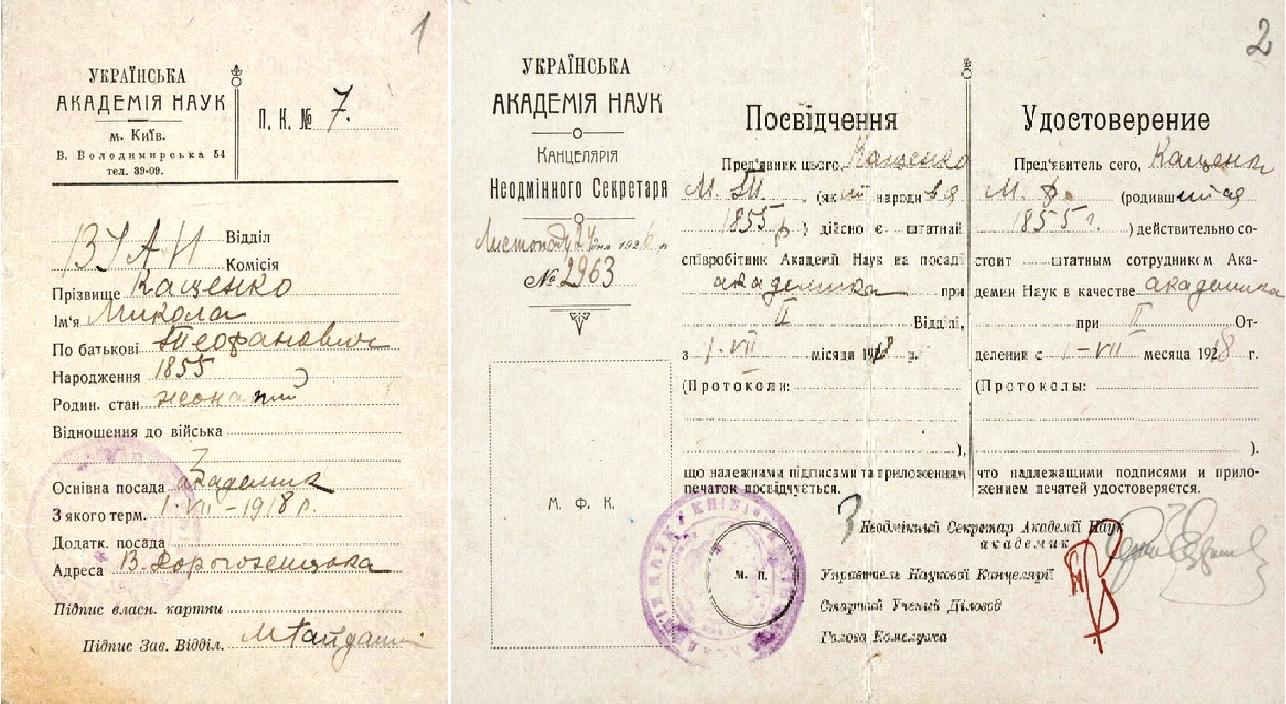 1
УКРАЇНСЬКА
АКАДЕМІЯ НАУК
м. Київ.
В. Володимирська 54
тел. 39-09.
П. К. № 7.
ВУАН Відділ
Комісія
Прізвище Кащенко
Ім'я Микола
По батькові Теофанович
Народження 1855
Родин. стан жонатий
Відношення до війська
Основна посада Академик
З якого терм. 1-VII-1918 р.
Додатк. посада
Адреса В.-Дорогожицька
Підпис власн. картки
Підпис Зав. Відділ.
2
УКРАЇНСЬКА
АКАДЕМІЯ НАУК
КАНЦЕЛЯРІЯ
Неодмінного Секретаря
Листопада 24 дня 1926 р.
№ 2963
М. Ф. К.
Посвідчення
Пред'явник цього, Кащенко
М. Т. (який народився
1855 р.) дійсно є штатний
співробітник Академії Наук на посаді
академика при
II Відділі,
з 1-VII місяця 1918 р.
(Протоколи:
),
що належними підписами та приложенням
печаток посвідчується.
Удостоверение
Пред'явитель сего, Кащенко
М. Ф. (родившийся
1855 г.) действительно со-
стоит штатным сотрудником Ака-
демии Наук в качестве академика
при II От-
делении с 1-VII месяца 1918 г.
(Протоколы:
).
что надлежащими подписями и прило-
жением печатей удостоверяется.
Неодмінний Секретар Академії Наук
академик
М. П.
Управитель Наукової Канцелярії
Старший Учений Діловод
Голова Комслужа